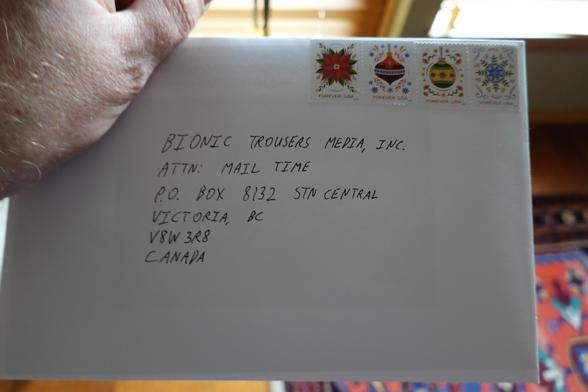 FOREVER USA
FOREVER USA
FOREVER USA
FOREVER USA
BIONIC TROUSERS MEDIA, INC.
ATTN: MAIL TIME
P.O. BOX 8132 STN CENTRAL
VICTORIA, BC
V8W 3R8
CANADA